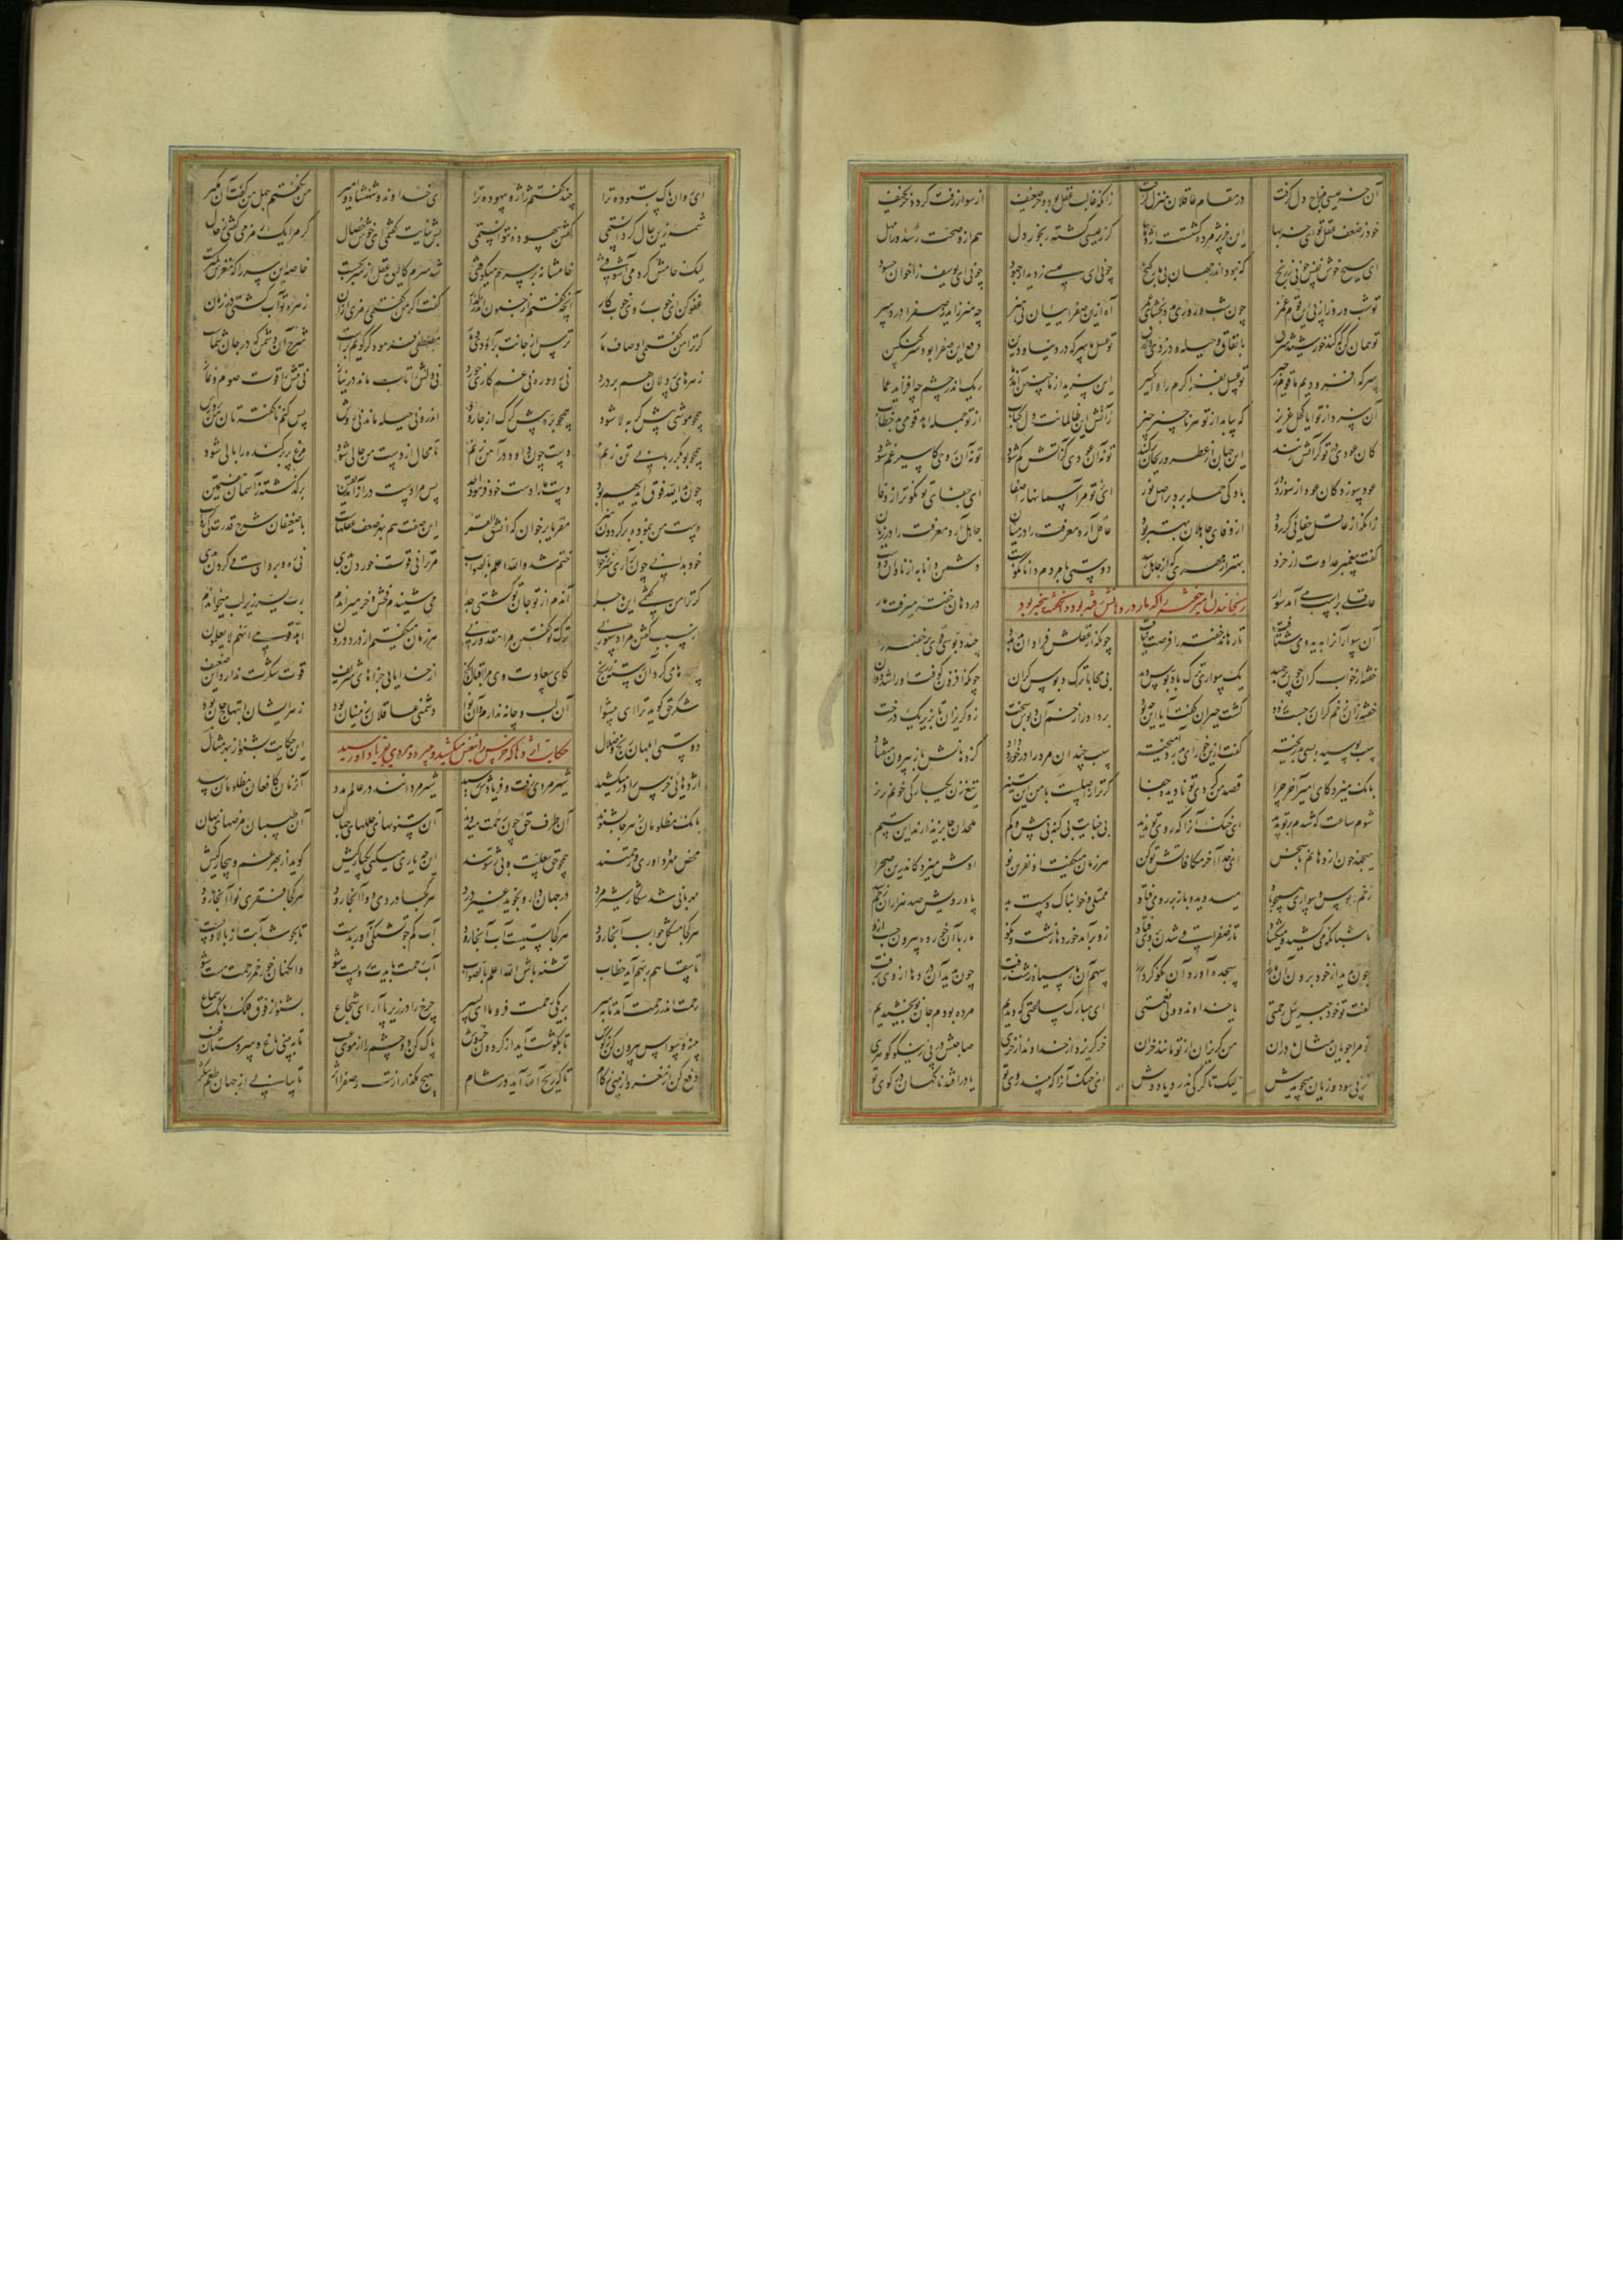 آن خر عیسی مزاج دل گرفت در مقام عاقلان منزل گرفت زانکه غالب عقل بود و خر ضعیف از سوار زفت گردد خر نحیف
خود ز ضعف عقل تو ای خر بها این خر پژمرده گشتست اژدها گر ز عیسی گشته رنجور دل هم ازو صحت رسد او را مهل
ای مسیح خوش نفس چونی ز رنج که نبود اندر جهان بی مار گنج چونی ای عیسی ز دیدار جهود چونی ای یوسف ز اخوان حسود
تو شب و روز از پی این قوم غمر چون شب و روزی مدد بخشای عمر آه ازین صفراییان بی هنر چه هنر زاید ز صفرا درد سر
تو همان کن که کند خورشید شرق با نفاق و حیله و دزدی و زرق تو عسل ما سرکه در دنیا و دین دفع این صفرا بود سرکنگبین
سرکه افزودیم ما قوم زحیر تو عسل بفزا کرم را وا مگیر این سزید از ما چنین آمد ز ما ریگ اندر چشم چه افزاید عما
آن سزد از تو ایا کحل عزیز که بیابد از تو هر ناچیز چیز ز آتش این ظالمانت دل کباب از تو جمله اهد قومی بد خطاب
کان عودی در تو گر آتش زنند این جهان از عطر و ریحان آکنند تو نه آن عودی کز آتش کم شود تو نه آن روحی کاسیر غم شود
عود سوزد کان عود از سوز دور باد کی حمله برد بر اصل نور ای ز تو مر آسمانها را صفا ای جفای تو نکوتر از وفا
زانکه از عاقل جفایی گر رود از وفای جاهلان بهتر بود عاقل آرد معرفت را در میان جاهل آرد معرفت را در زیان
گفت پیغمبر عداوت از خرد بهتر از مهری که از جاهل رسد دوستی با مردم دانا نکوست دشمن دانا به از نادان دوست
رنجانیدن امیر خفته را که مار در دهانش رفته بود
عاقلی بر اسب می آمد سوار در دهان خفته میرفت مار
آن سوار آنرا بدید و می شتافت تا رهاند خفته را فرصت نیافت چونکه از عقلش فراوان بد مدد چند دبوسی قوی بر خفته زد
خفته از خواب گران چون بر جهید یک سوار ترک با دبوس دید بی محابا ترک دبوس گران چونکه افزون کوفت او را شد دوان
خفته زان زخم گران بر جست زود گشت حیران گفت آیا این چه بود برد او را زخم آن دبوس سخت زو گریزان تا بزیر یک درخت
سیب پوسیده بسی بد ریخته گفت ازین خور ای بدرد آمیخته سیب چندان مرد را در خورد داد کز دهانش باز بیرون میفتاد
بانک میزد کای امیر آخر چرا قصد من کردی تو نادیده جفا گر ترا ز اصلست با من این ستیز تیغ زن یکبارگی خونم بریز
شوم ساعت که شدم بر تو پدید ای خنک آنرا که روی تو ندید بی جنایت بی گنه بی بیش و کم ملحدان جایز ندارند این ستم
میجهد خون از دهانم با سخن ای خدا آخر مکافاتش تو کن هر زمان میگفت او نفرین نو اوش میزد کاندرین صحرا بدو
زخم دبوس و سواری همچو باد میدوید و باز بر رو می فتاد ممتلی و خوابناک و سست بد پا و رویش صد هزاران زخم شد
تا شبانگه می کشید و میگشاد تا ز صفرا قی شدن بر وی فتاد زو بر آمد خورده ها زشت و نکو مار با آن خورده بیرون جست ازو
چون بدید از خود برون آن مار را سجده آورد آن نکو کردار را سهم آن مار سیاه زشت زفت چون بدید آن دردها از وی برفت
گفت تو خود جبرئیل رحمتی یا خداوند و ولی نعمتی ای مبارک ساعتی که دیدیم مرده بودم جان نو بخشیدیم
تو مرا جویان مثال مادران من گریزان از تو مانند خران خر گریزد از خداوند از خری صاحبش در پی ز نیکو گوهری
نز پی سود و زیان میجویدش لیک تا گرگش ندرد یا ددش ای خنک آنرا که بیند روی تو یا در افتد ناگهان در کوی تو
ای روان پاک بستوده ترا چند گفتم ژاژ و بیهوده ترا ای خداوند و شهنشاه و امیر من نگفتم جهل من گفت آن مگیر
شمه زین حال گر دانستمی گفتن بیهوده نتوانستمی بس ثنایت گفتمی ای خوش خصال گر مرا یک رمز می گفتی ز حال
لیک خامش کرده می آشوفتی خامشانه بر سرم میکوفتی شد سرم کالیوه عقل از سر بجست خاصه این سر را که مغزش کمترست
عفو کن ای خوب روی خوب کار آنچه گفتم از جنون اندر گذار گفت اگر من گفتمی رمزی از آن زهره تو آب گشتی در زمان
گر ترا من گفتمی اوصاف مار ترس از جانت بر آوردی دمار مصطفی فرمود گر گویم براست شرح آن دشمن که در جان شماست
زهرهای پردلان هم بر درد نی رود ره نی غم کاری خورد نی دلش را تاب ماند در نیاز نی تنش را قوت صوم و نماز
همچو موشی پیش گربه لا شود همچو بره پیش گرگ از جا رود اندرو نی حیله ماند نی روش پس کنم ناگفته تان من پرورش
همچو بوبکر ربابی تن زنم دست چون داود در آهن زنم تا محال از دست من حالی شود مرغ پر برکنده را بالی شود
چون ید الله فوق ایدیهم بود دست ما را دست خود فرمود احد پس مرا دست دراز آمد یقین بر گذشته ز آسمان هفتمین
دست من بنمود بر گردون هنر مقریا بر خوان که انشق القمر این صفت هم بهر ضعف عقلهاست با ضعیفان شرح قدرت کی رواست
خود بدانی چون بر آری سر ز خواب ختم شد والله اعلم بالصواب مر ترا نی قوت خوردن بدی نی ره و پروای قی کردن بدی
گر ترا من گفتمی این ماجرا آندم از تو جان تو گشتی جدا می شنیدم فحش و خر میراندم رب یسر زیر لب میخواندم
از سبب گفتن مرا دستور نی ترک تو گفتن مرا مقدور نی هر زمان میگفتم از درد درون اهد قومی انهم لا یعلمون
سجده های کرد آن رسته ز رنج کای سعادت وی مرا اقبال و گنج از خدا یابی جزاهای شریف قوت شکرت ندارد این ضعیف
شکر حق گوید ترا ای پیشوا آن لب و چانه ندارم و آن نوا دشمنی عاقلان زینسان بود زهر ایشان ابتهاج جان بود
دوستی ابلهان رنج و ضلال این حکایت بشنو از بهر مثال
حکایت اژدها که خرس را بنفس میکشید و مردی بفریاد او رسید
اژدهایی خرس را در میکشید شیر مردی رفت و فریادش رسید شیر مردانند در عالم مدد آنزمان کافغان مظلومان رسد
بانک مظلومان ز هر جا بشنوند آن طرف چون رحمت حق میدوند آن ستونهای خللهای جهان آن طبیبان مرضهای نهان
محض مهر و داوری و رحمتند همچو حق بی علت و بی رشوتند این چه یاری میکنی یکبارگیش گوید از بهر غم و بیچارگیش
مهربانی شد شکار شیر مرد در جهان دارو نجوید غیر درد هر کجا دردی دوا آنجا رود هر کجا فقری نوا آنجا رود
هر کجا مشکل جواب آنجا رود هر کجا پستیست آب آنجا رود آب کم جو تشنگی آور بدست تا بجوشد آبت از بالا و پست
تا سقاهم ربهم آید خطاب تشنه باش الله اعلم بالصواب آب رحمت بایدت رو پست شو وانگهان خور خمر رحمت مست شو
رحمت اندر رحمت آمد تا بسر بر یکی رحمت فرو ما ای پسر چرخ را در زیر پا آر ای شجاع بشنو از فوق فلک بانک سماع
پنبه وسواس بیرون کن ز گوش تا بگوشت آید از گردون خروش پاک کن دو چشم را از موی عیب تا ببینی باغ و سروستان غیب
دفع کن از مغز و از بینی زکام تا که ریح الله آید در مشام هیچ مگذار از تب و صفرا اثر تا بیابی از جهان طعم شکر